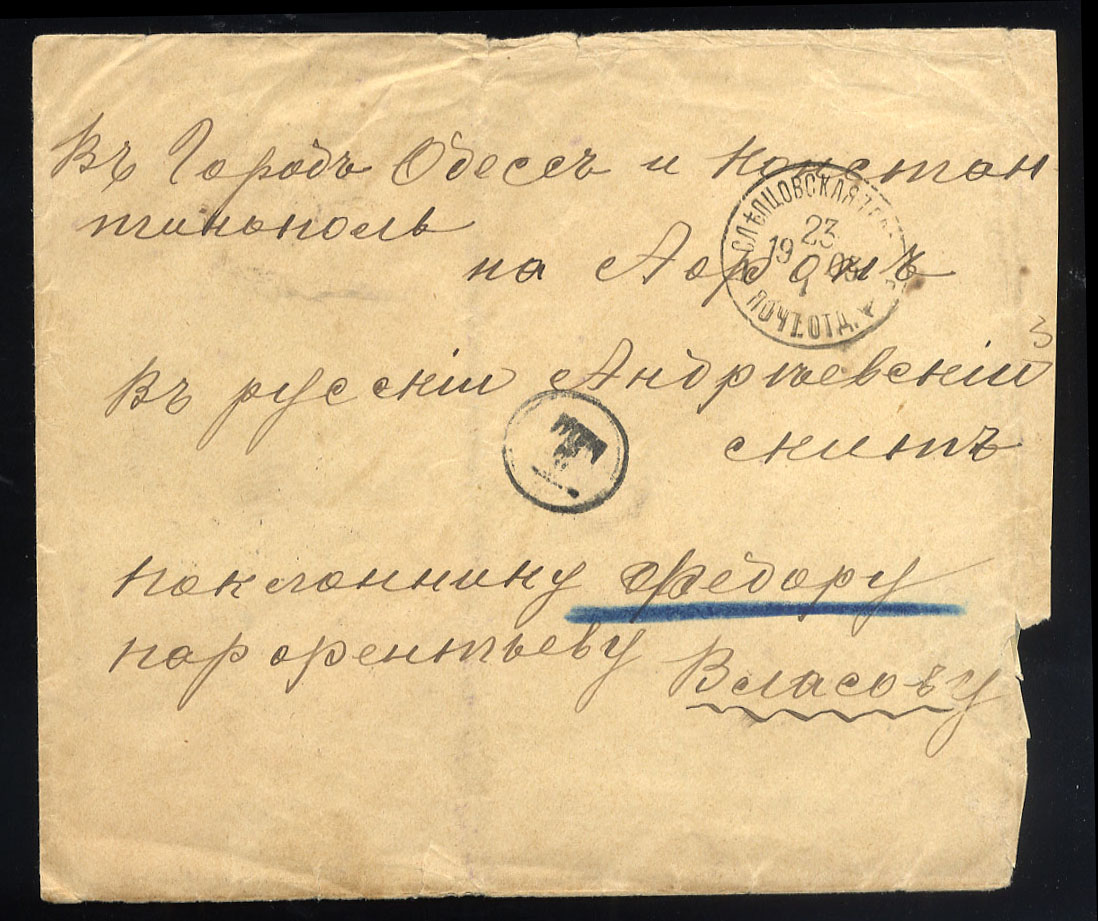 Въ Городъ Одессъ и Констан
тинополь
на Аѳонъ
Въ русскій Андреевскій
скитъ
поклоннику Федору
парфентьеву Власову
СЛѢПЦОВСКАЯ
23
19 03
ПОЧТ.ОТД.
Т
3